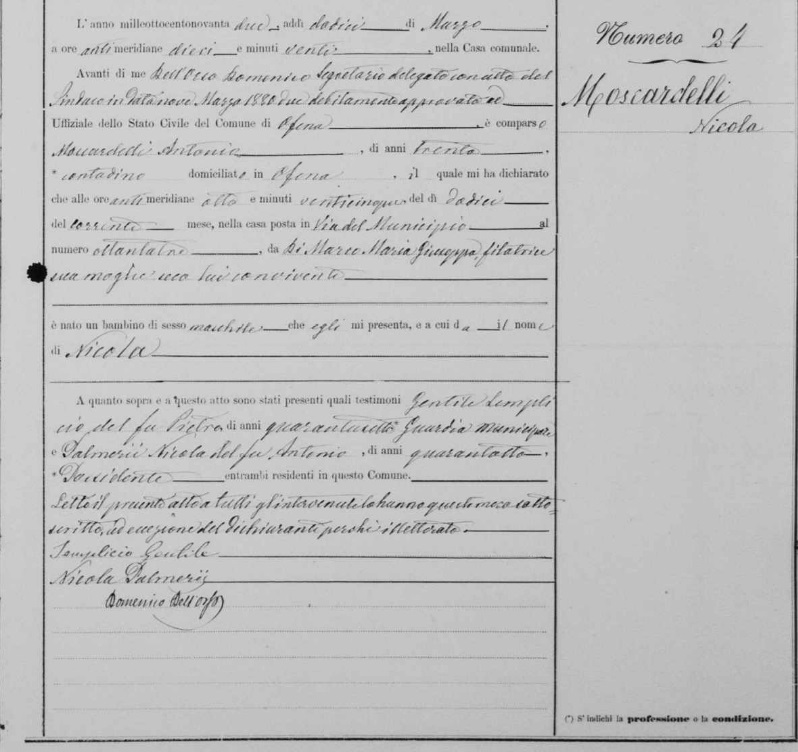 L'anno milleottocentonovanta due, addì dodici di Marzo,
a ore anti meridiane dieci e minuti venti, nella Casa comunale.
Avanti di me Dell'Orso Domenico Segretario delegato con atto del
Sindaco in data nove Marzo 1880 due debitamente approvato ed
Uffiziale dello Stato Civile del Comune di Ofena, è comparso
Moscardelli Antonio, di anni trenta,
* contadino domiciliato in Ofena, il quale mi ha dichiarato
che alle ore anti meridiane otto e minuti venticinque del dì dodici
del corrente mese, nella casa posta in Via del Municipio al
numero ottantatre, da Di Marco Maria Giuseppa, filatrice
sua moglie seco lui convivente
è nato un bambino di sesso maschile che egli mi presenta, e a cui da il nome
di Nicola
A quanto sopra e a questo atto sono stati presenti quali testimoni Gentile Sempli
cio del fu Pietro, di anni quarantasette Guardia municipale
e Dalmerij Nicola del fu Antonio, di anni quarantotto,
* Possidente entrambi residenti in questo Comune.
Letto il presente atto a tutti gl'intervenuti lo hanno questi meco sotto-
scritto, ad eccezione del dichiarante perché illetterato.
Semplicio Gentile
Nicola Dalmerij
Domenico Dell'Orso
Numero 24
Moscardelli
Nicola
(*) S'indichi la professione o la condizione.